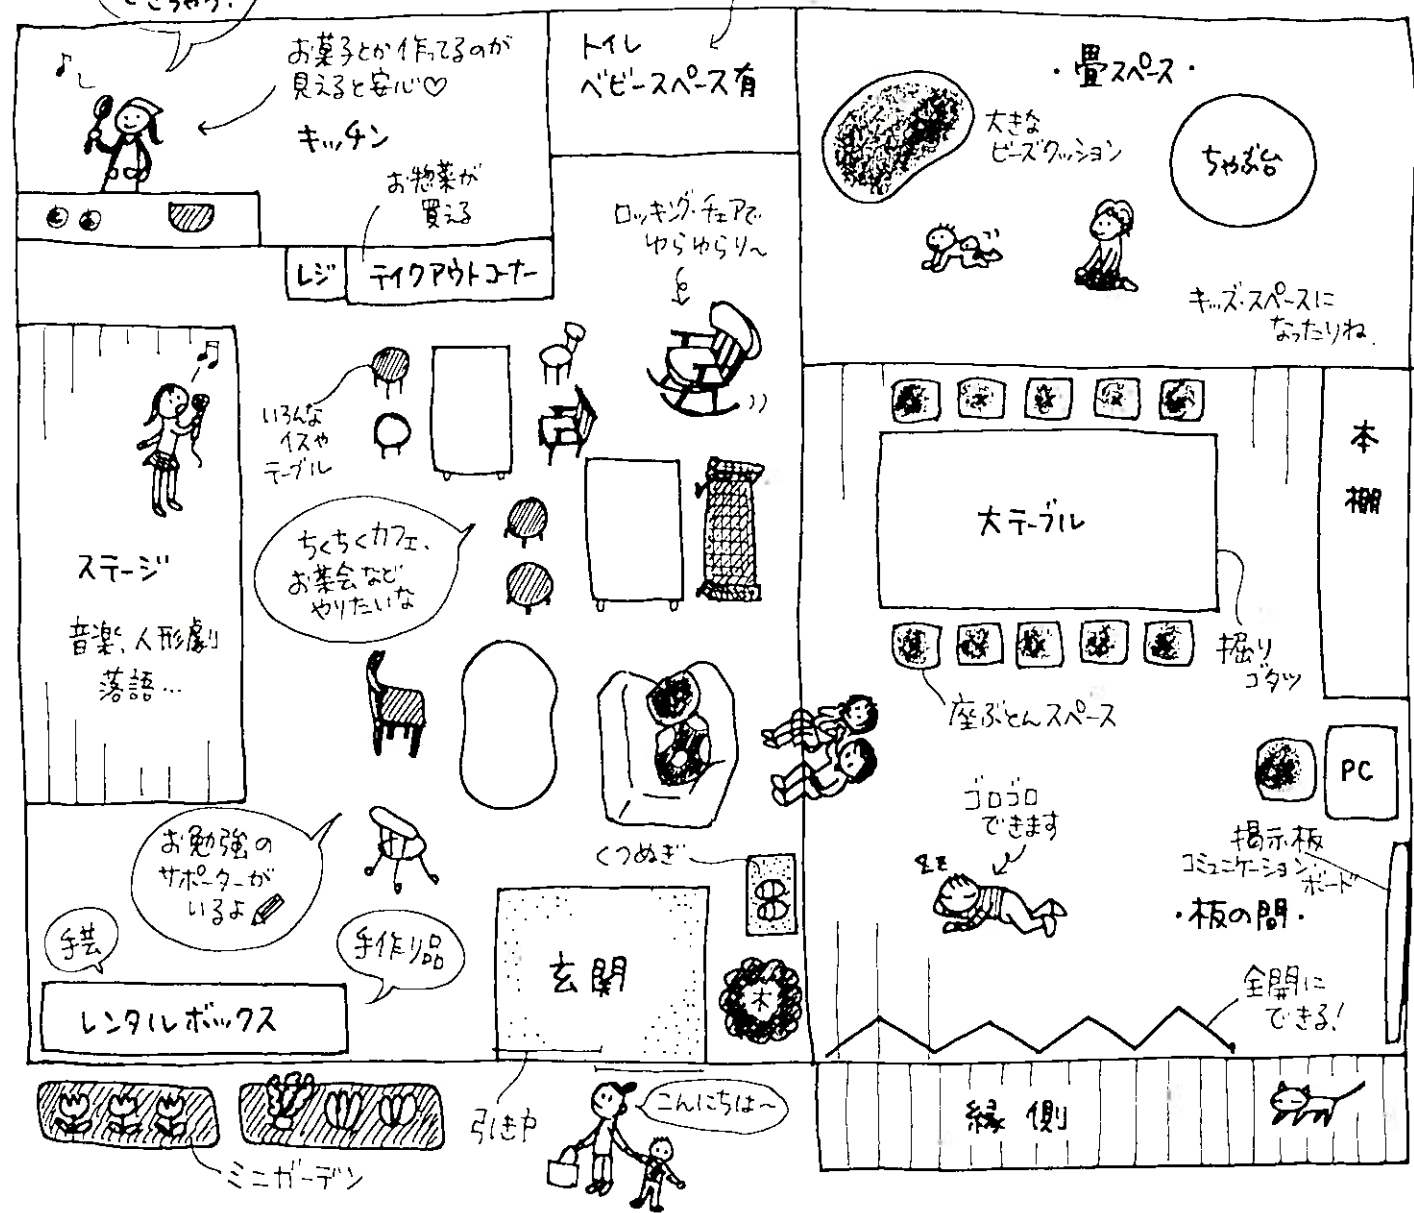 お菓子とか作ってるのが
見えると安心♡
キッチン
お惣菜が
買える
レジ
テイクアウトコーナー
トイレ
ベビースペース有
ロッキング・チェアで
ゆらゆらり～
・畳スペース・
大きな
ビーズクッション
ちゃぶ台
キッズ・スペースに
なったりね.
いろんな
イスや
テーブル
ちくちくカフェ、
お茶会など
やりたいな
ステージ
音楽、人形劇
落語…
本
棚
大テーブル
掘り
ゴタツ
座ぶとんスペース
PC
ゴロゴロ
できます
zz
掲示板
コミュニケーション・
ボード
・板の間・
全開に
できる!
お勉強の
サポーターが
いるよ
くつぬぎ
手芸
手作り品
レンタルボックス
玄関
木
引き戸
こんにちは～
縁側
ミニガーデン